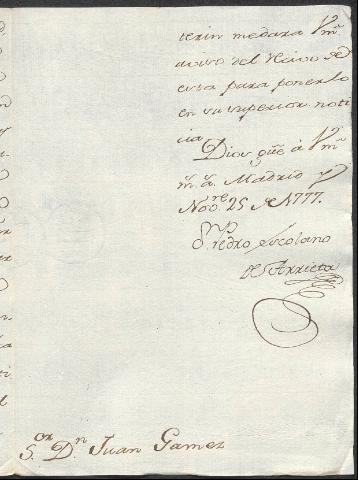 terin me dara Vm.
aviso del Recivo de
esta para ponerlo
en su superior noti
cia.
Dios gũe â Vm.
m.s a.s Madrid y
Nov.re 25 de 1777.
D.n Pedro Escolano
de Arrieta
S.or D.n Juan Gamez